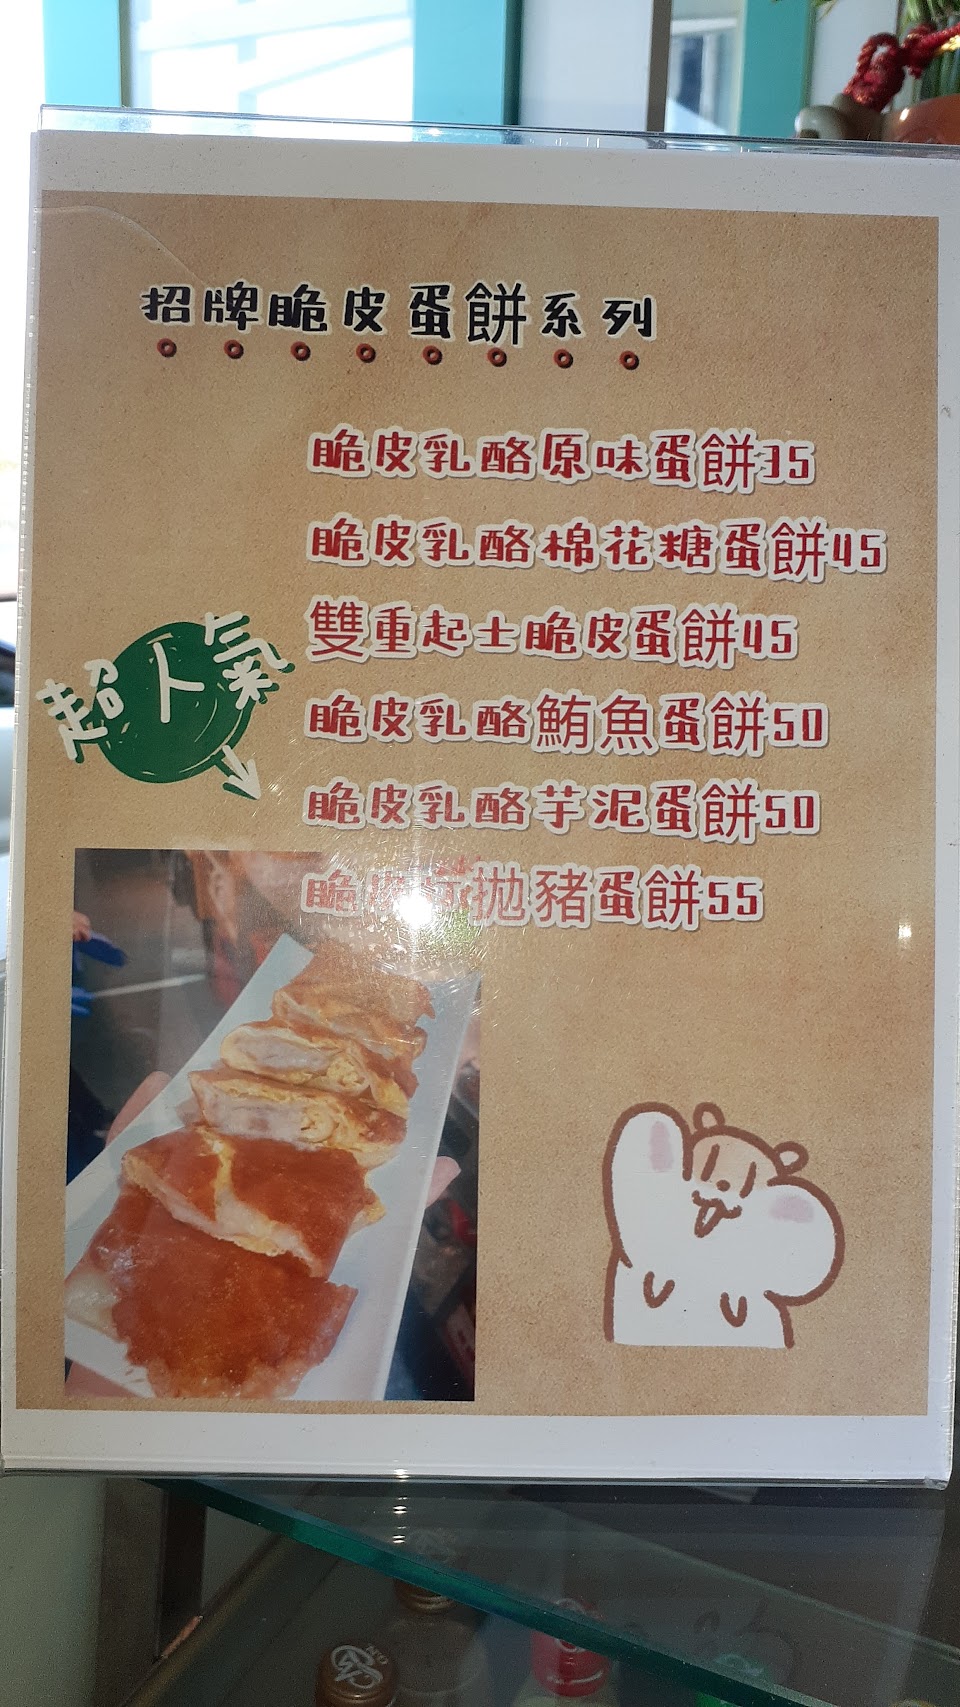 招牌脆皮蛋餅系列
脆皮乳酪原味蛋餅35
脆皮乳酪棉花糖蛋餅45
雙重起士脆皮蛋餅45
超人氣
脆皮乳酪鮪魚蛋餅50
脆皮乳酪芋泥蛋餅50
脆皮 拋豬蛋餅55